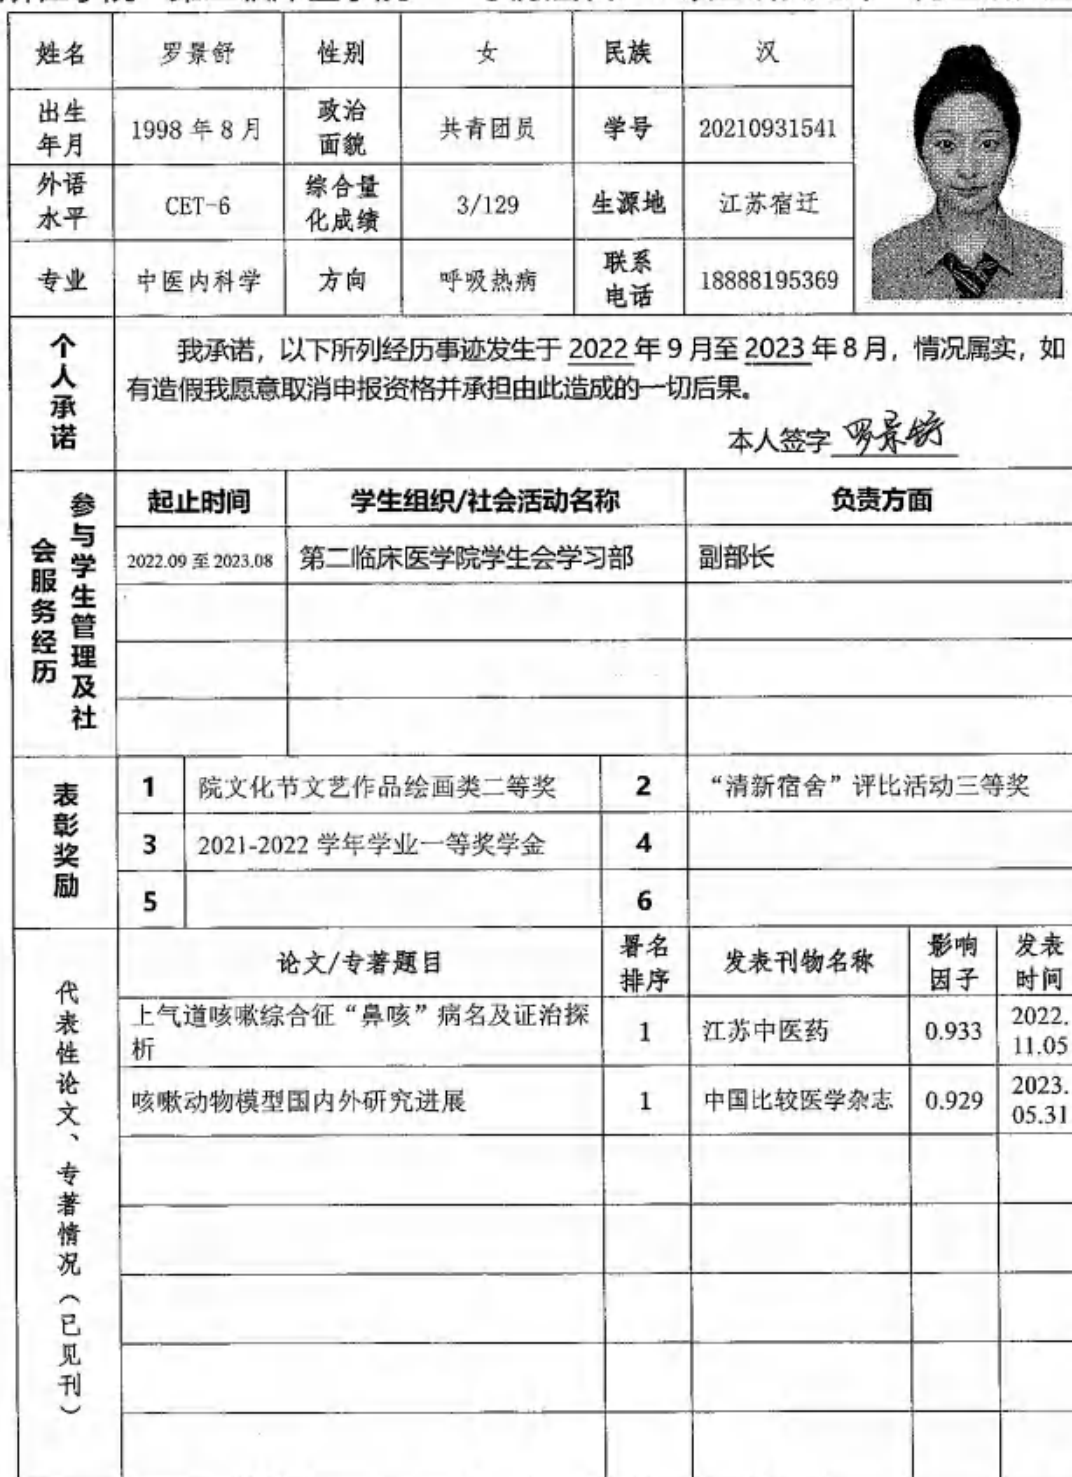 姓名 罗景舒 性别 女 民族 汉
出生年月 1998年8月 政治面貌 共青团员 学号 20210931541
外语水平 CET-6 综合量化成绩 3/129 生源地 江苏宿迁
专业 中医内科学 方向 呼吸热病 联系电话 18888195369
个人承诺
我承诺，以下所列经历事迹发生于 2022 年 9 月至 2023 年 8 月，情况属实，如
有造假我愿意取消申报资格并承担由此造成的一切后果。
本人签字 罗景舒
参与学生管理及社会服务经历
起止时间 学生组织/社会活动名称 负责方面
2022.09 至 2023.08 第二临床医学院学生会学习部 副部长
表彰奖励
1 院文化节文艺作品绘画类二等奖 2 “清新宿舍”评比活动三等奖
3 2021-2022 学年学业一等奖学金 4
5 6
代表性论文、专著情况（已见刊）
论文/专著题目 署名排序 发表刊物名称 影响因子 发表时间
上气道咳嗽综合征“鼻咳”病名及证治探析 1 江苏中医药 0.933 2022.11.05
咳嗽动物模型国内外研究进展 1 中国比较医学杂志 0.929 2023.05.31